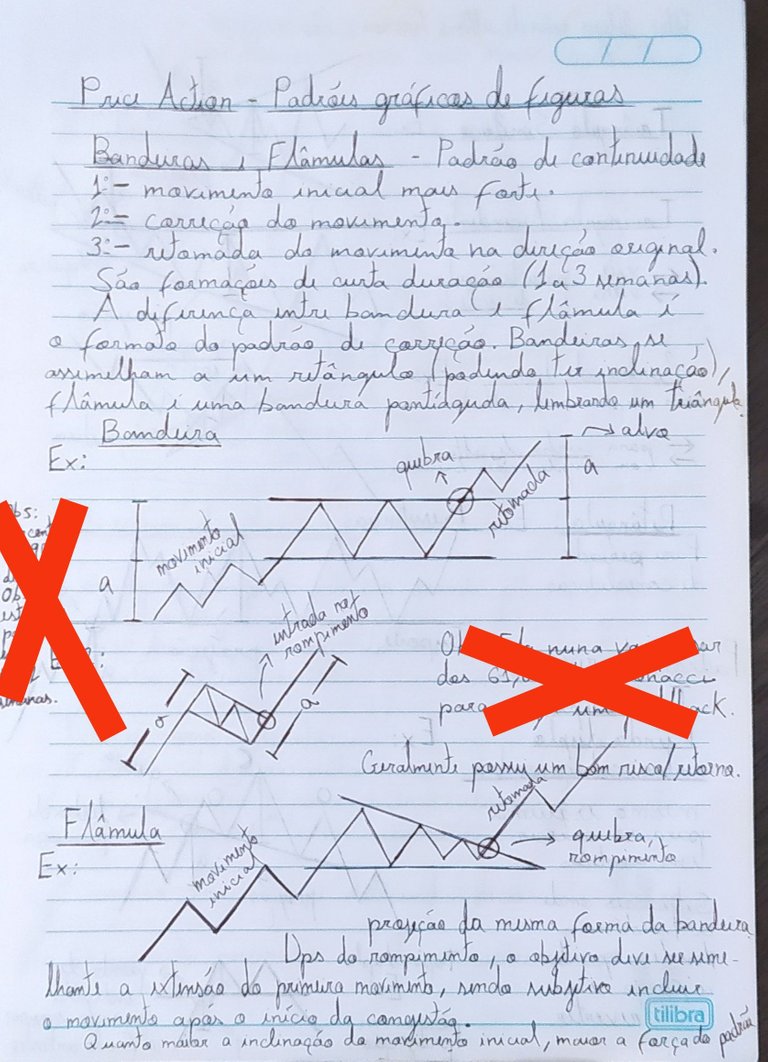 / /
Price Action - Padrões gráficos de figuras
Bandeiras e Flâmulas - Padrão de continuidade
1º - movimento inicial mais forte.
2º - correção do movimento.
3º - retomada do movimento na direção original.
São formações de curta duração (1 a 3 semanas).
A diferença entre bandeira e flâmula é
o formato do padrão de correção. Bandeiras se
assemelham a um retângulo (podendo ter inclinação),
flâmula é uma bandeira pontiaguda, lembrando um triângulo.
Bandeira
Ex:
→ alvo
quebra
a
retomada
movimento inicial
a
Obs:
entrada no rompimento
a
a
nuna
dos 61,
para um
Geralmente possui um bom risco/retorno.
Flâmula
Ex:
movimento inicial
retomada
→ quebra,
rompimento
projeção da mesma forma da bandeira
Dps do rompimento, o objetivo deve ser seme-
lhante a extensão do primeiro movimento, sendo subjetivo incluir
o movimento após o início da congestão.
tilibra
Quanto maior a inclinação do movimento inicial, maior a força do padrão